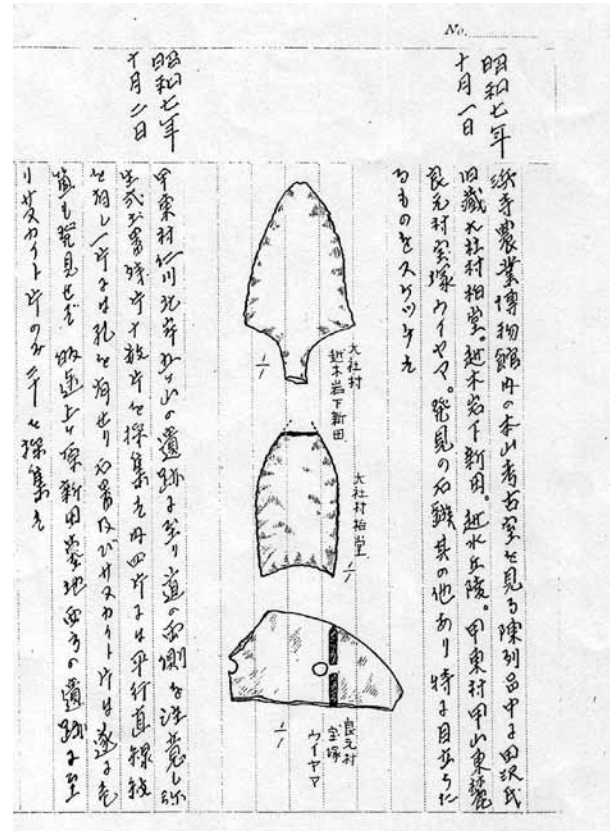 No.
昭和七年
十月一日
浜寺農業博物館内の本山考古室を見る陳列品中に田沢氏
旧蔵大社村柏堂。越木岩下新田。越水丘陵。甲東村甲山東麓
良元村宝塚ウイヤマ。発見の石鏃其の他あり特に目立ちた
るものをスケッチす
大社村
越木岩下新田
1/1
大社村柏堂
1/1
良元村
宝塚
ウイヤマ
1/1
昭和七年
十月二日
甲東村仁川北岸五ヶ山の遺跡に至り道の両側を注意し弥
生式土器残片十数片を採集す内四片には平行直線紋
を有し一片には孔を有せり石器及びサヌカイト片は遂に
も発見せず 帰途上ヶ原新田墓地西方の遺跡に至
りサヌカイト片のみ二十を採集す